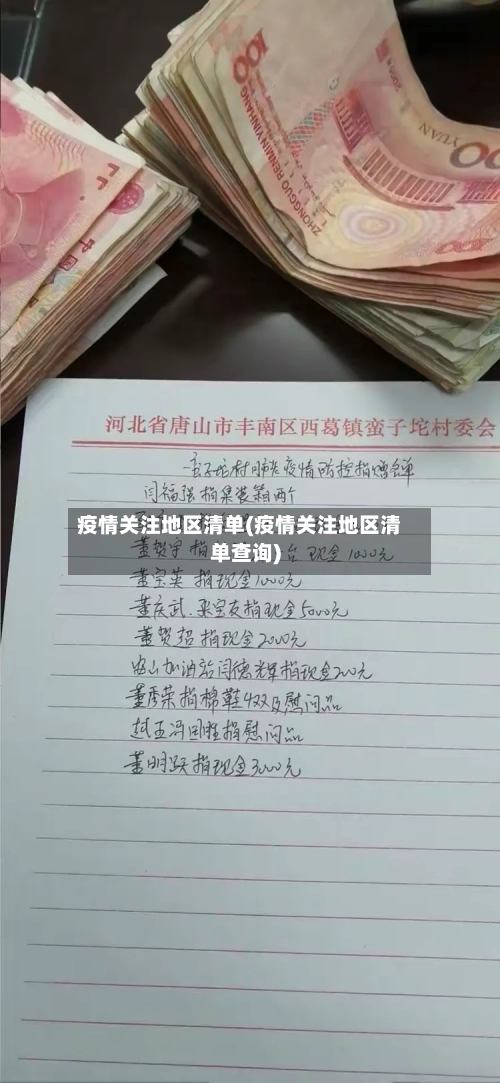 100
ZHONGGUO RENMIN YINHANG
YUAN
100
中国
河北省唐山市丰南区西葛镇蛮子坨村委会
蛮子坨村肺炎疫情防控捐赠名单
闫福强捐集装箱两个
疫情关注地区清单(疫情关注地区清
单查询)
台 现金1000元
董宝英 捐现金1000元
董庆武. 宝友捐现金5000元
董贺超捐现金2000元
加油站闫德辉捐现金200元
董秀荣捐棉鞋4双及慰问品
捐慰问品
董明跃捐现金3000元